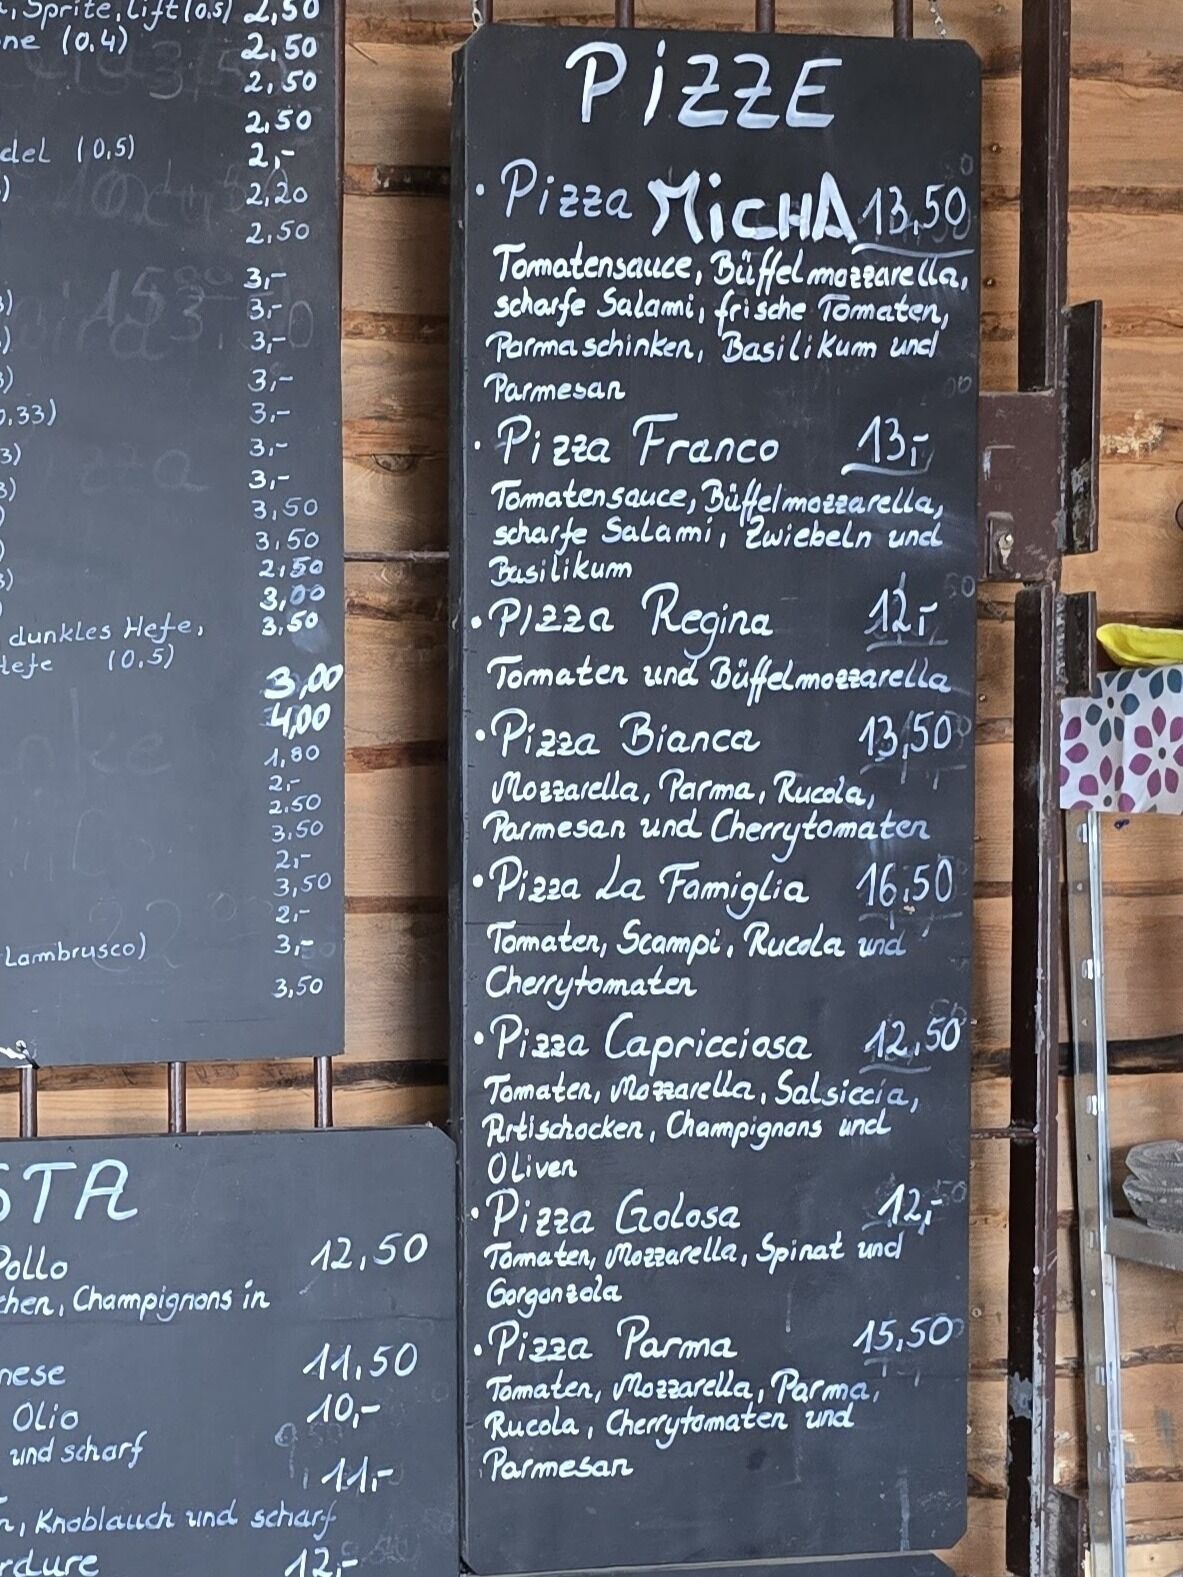 Sprite, Lift (0,5) 2,50
(0,4) 2,50
2,50
2,50
(0,5) 2,-
2,20
2,50
3,-
3,-
3,-
3,-
3,-
3,-
3,-
3,50
3,50
2,50
3,00
dunkles Hefe, 3,50
(0,5)
3,00
4,00
1,80
2,-
2,50
3,50
2,-
3,50
2,-
Lambrusco) 3,-
3,50
12,50
Champignons in
11,50
Olio 10,-
und scharf
11,-
Knoblauch und scharf
12,-
PIZZE
• Pizza MICHA 13,50
Tomatensauce, Büffelmozzarella,
scharfe Salami, frische Tomaten,
Parmaschinken, Basilikum und
Parmesan
• Pizza Franco 13,-
Tomatensauce, Büffelmozzarella,
scharfe Salami, Zwiebeln und
Basilikum
• PIzza Regina 12,-
Tomaten und Büffelmozzarella
• Pizza Bianca 13,50
Mozzarella, Parma, Rucola,
Parmesan und Cherrytomaten
• Pizza La Famiglia 16,50
Tomaten, Scampi, Rucola und
Cherrytomaten
• Pizza Capricciosa 12,50
Tomaten, Mozzarella, Salsiccia,
Artischocken, Champignons und
Oliven
• Pizza Golosa 12,-
Tomaten, Mozzarella, Spinat und
Gorgonzola
• Pizza Parma 15,50
Tomaten, Mozzarella, Parma,
Rucola, Cherrytomaten und
Parmesan